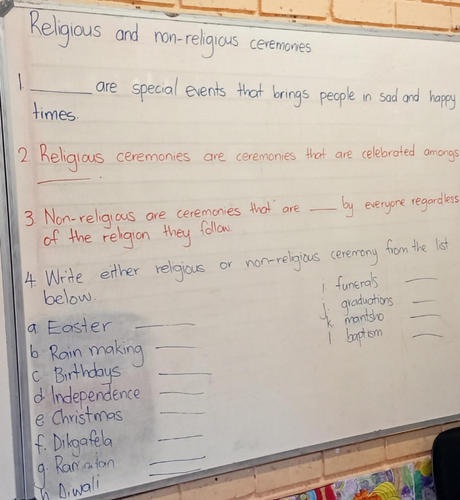 Religious and non-religious ceremonies
1. ______ are special events that brings people in sad and happy
times.
2. Religious ceremonies are ceremonies that are celebrated amongs
______.
3. Non-religious are ceremonies that are ____ by everyone regardless
of the religion they follow.
4. Write either religious or non-religious ceremony from the list
below.
a. Easter ______
b. Rain making ______
c. Birthdays ______
d. Independence ______
e. Christmas ______
f. Dikgafela ______
g. ______
h. Diwali
i. funerals ______
j. graduations ______
k. mantsho ______
l. baptism ______